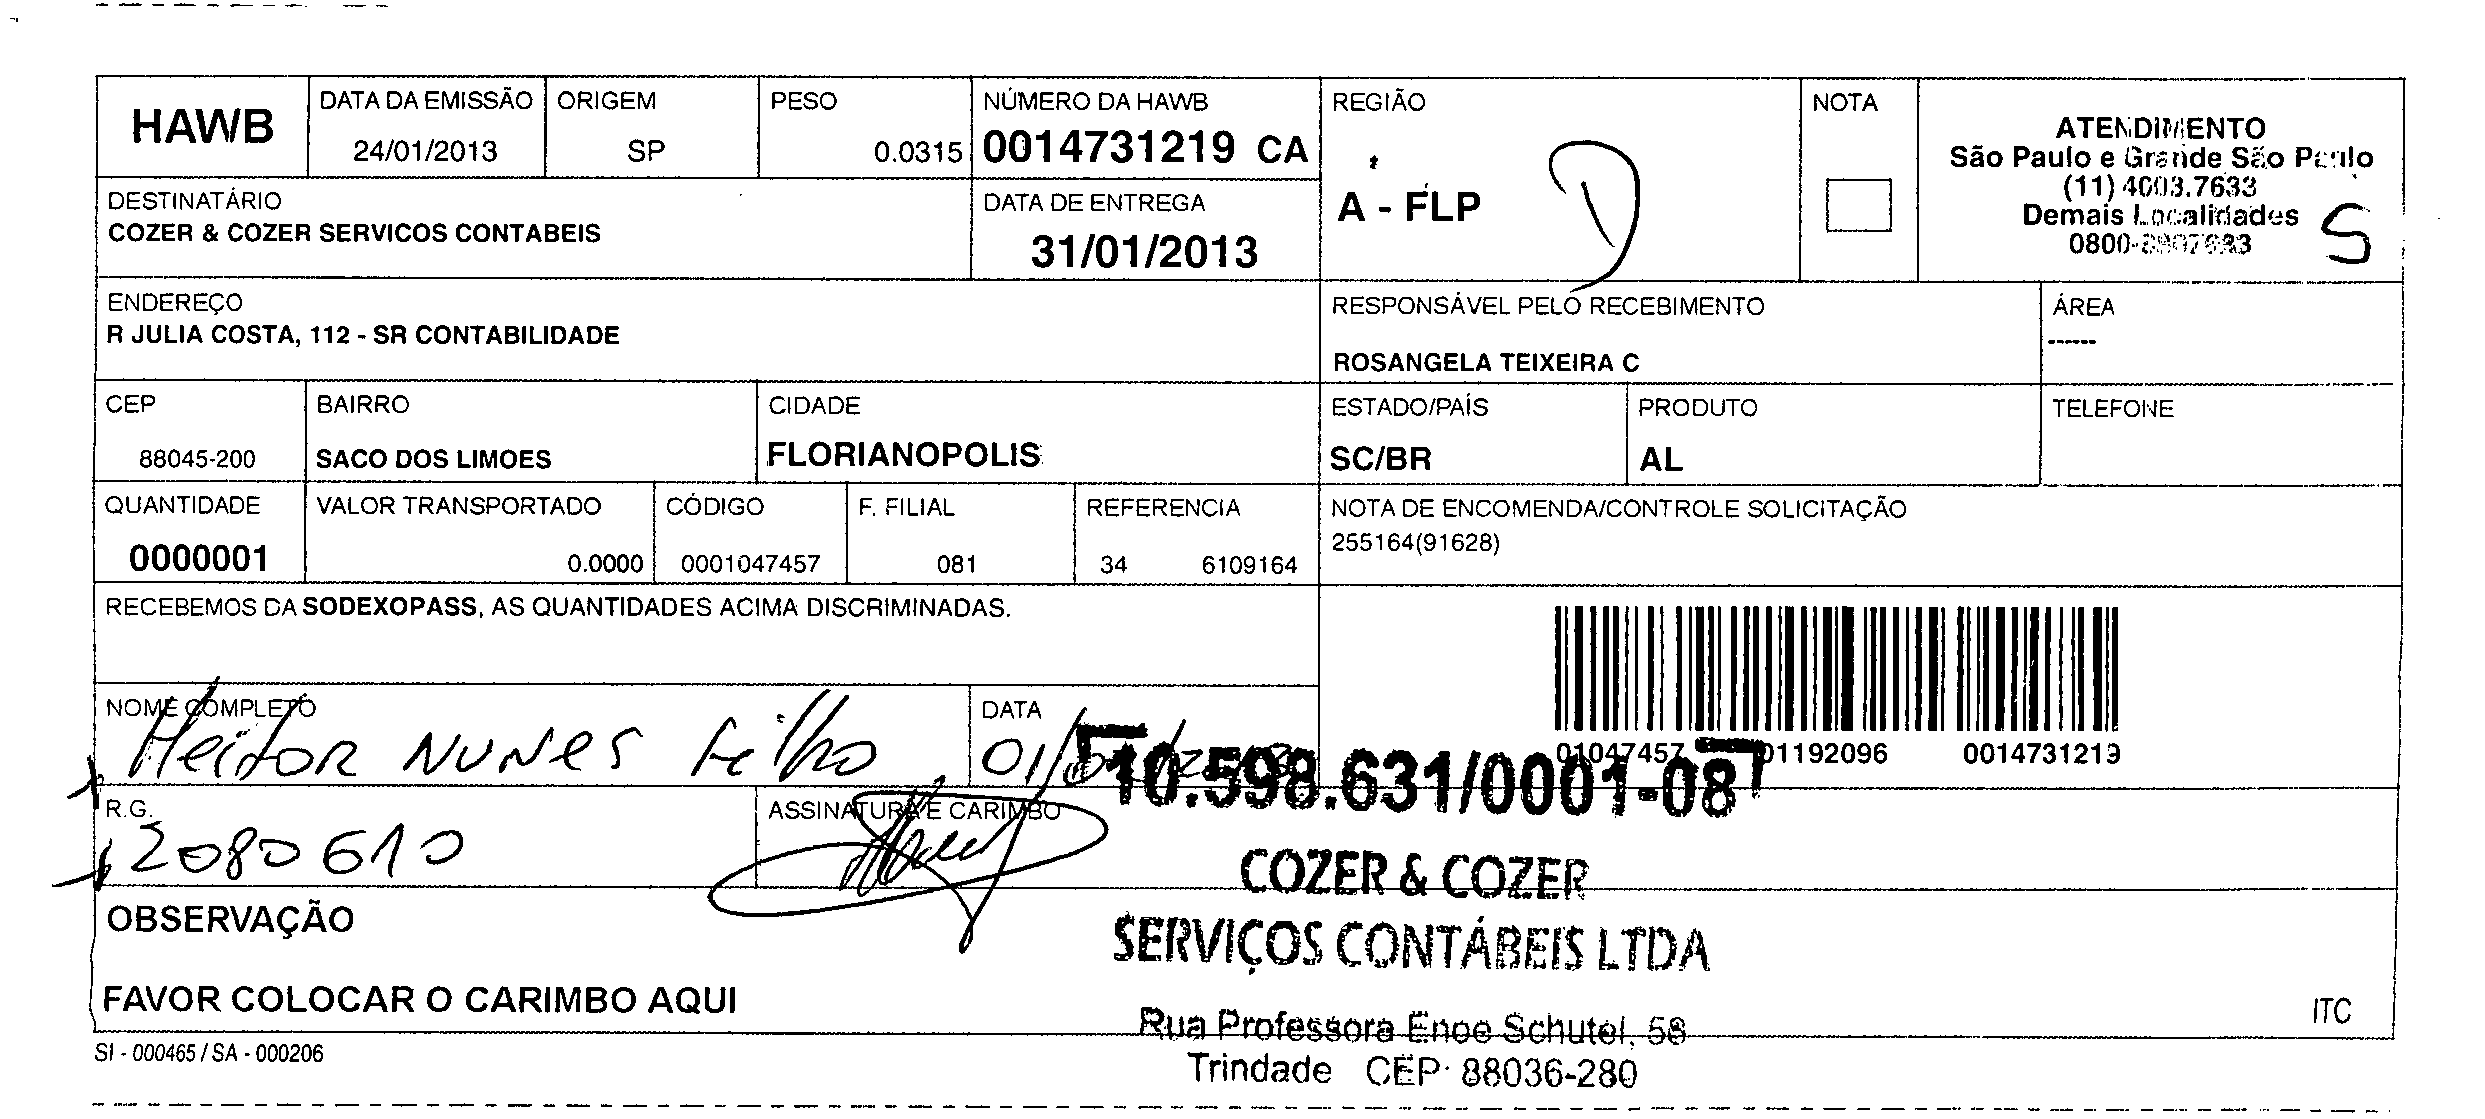 HAWB
DATA DA EMISSÃO
24/01/2013
ORIGEM
SP
PESO
0.0315
NÚMERO DA HAWB
0014731219 CA
REGIÃO
A - FLP
NOTA
ATENDIMENTO
São Paulo e Grande São Paulo
(11) 4003.7633
Demais Localidades
S
DESTINATÁRIO
COZER & COZER SERVICOS CONTABEIS
DATA DE ENTREGA
31/01/2013
ENDEREÇO
R JULIA COSTA, 112 - SR CONTABILIDADE
RESPONSÁVEL PELO RECEBIMENTO
ROSANGELA TEIXEIRA C
ÁREA
------
CEP
88045-200
BAIRRO
SACO DOS LIMOES
CIDADE
FLORIANOPOLIS
ESTADO/PAÍS
SC/BR
PRODUTO
AL
TELEFONE
QUANTIDADE
0000001
VALOR TRANSPORTADO
0.0000
CÓDIGO
0001047457
F. FILIAL
081
REFERENCIA
34 6109164
NOTA DE ENCOMENDA/CONTROLE SOLICITAÇÃO
255164(91628)
RECEBEMOS DA SODEXOPASS, AS QUANTIDADES ACIMA DISCRIMINADAS.
01047457 01192096 0014731219
NOME COMPLETO
Heitor Nunes Filho
DATA
R.G.
2080610
ASSINATURA E CARIMBO
10.598.631/0001-08
COZER & COZER
SERVIÇOS CONTÁBEIS LTDA
Rua Professora Enoe Schutel, 58
Trindade CEP: 88036-280
OBSERVAÇÃO
FAVOR COLOCAR O CARIMBO AQUI
ITC
SI - 000465 / SA - 000206